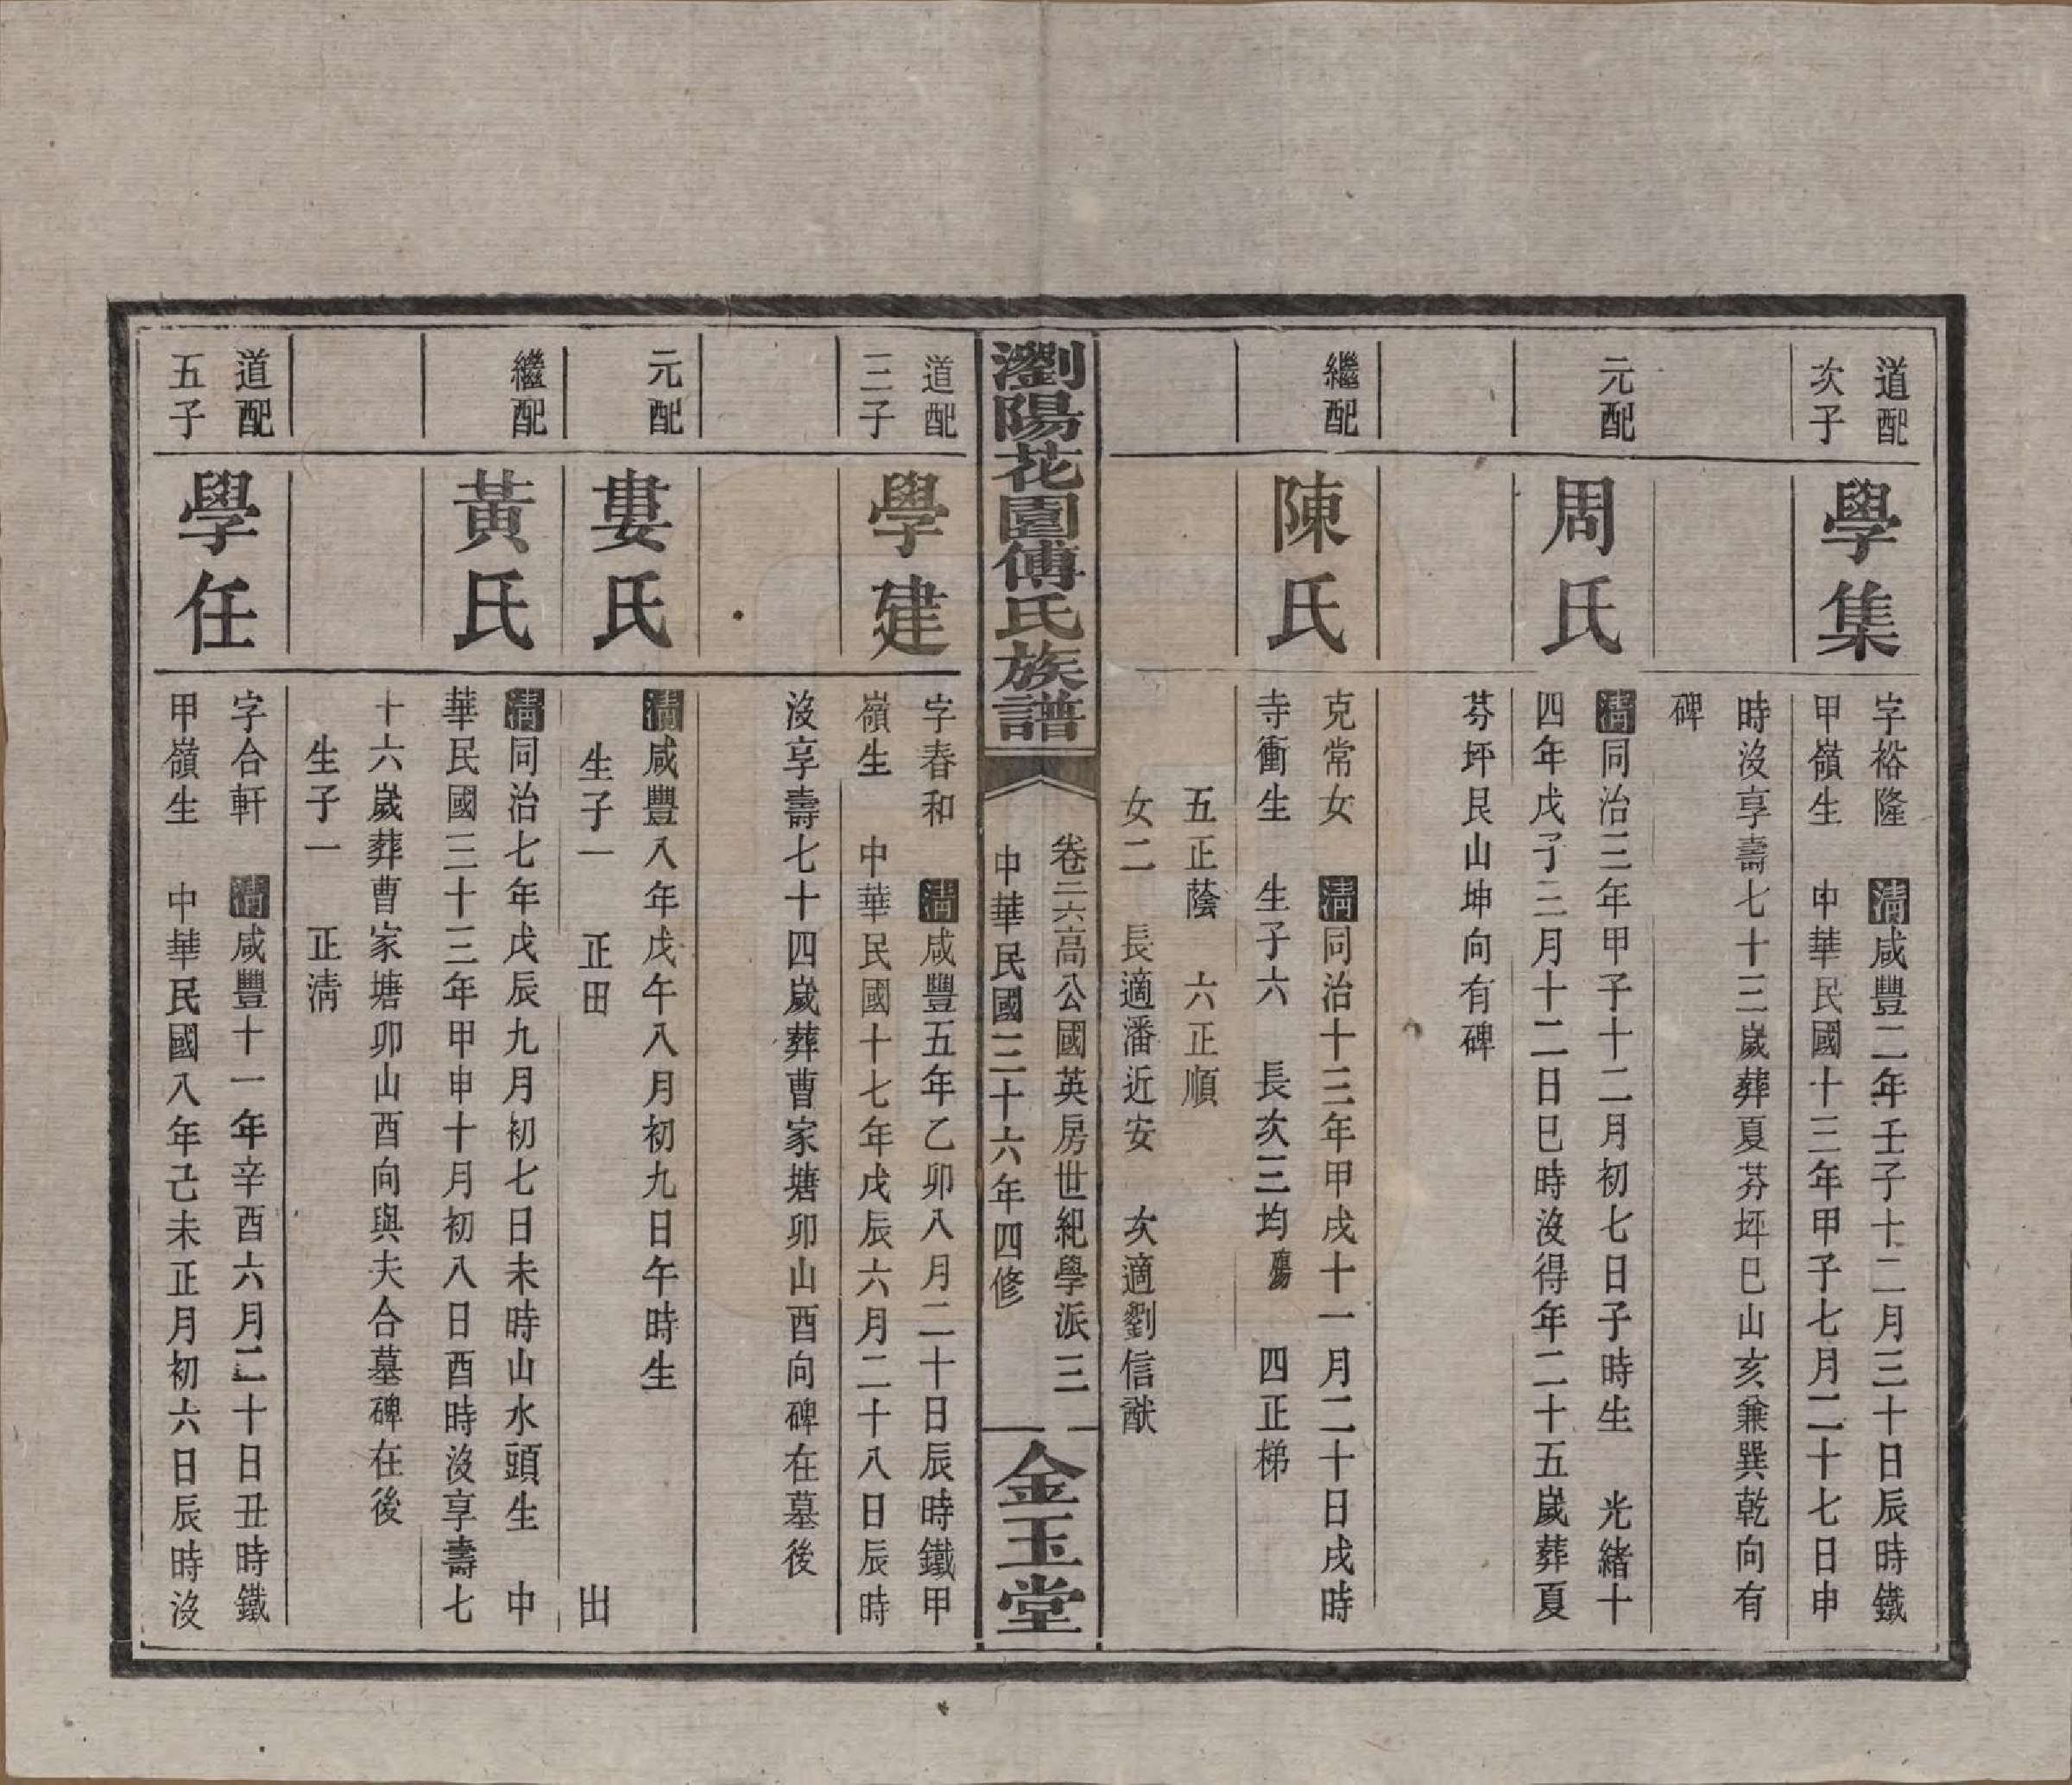 道配
次子
學集
字裕隆　清咸豐二年壬子十二月三十日辰時鐵
甲嶺生　中華民國十三年甲子七月二十七日申
時沒享壽七十三歲葬夏芬坪巳山亥兼巽乾向有
碑
元配
周氏
清同治三年甲子十二月初七日子時生　光緒十
四年戊子三月十二日巳時沒得年二十五歲葬夏
芬坪艮山坤向有碑
繼配
陳氏
克常女　清同治十三年甲戌十一月二十日戌時
寺衝生　生子六　長次三均殤　四正梯
五正蔭　六正順
女二　長適潘近安　次適劉信猷
瀏陽花園傅氏族譜
卷二六高公國英房世紀學派三
中華民國三十六年四修
金玉堂
道配
三子
學建
字春和　清咸豐五年乙卯八月二十日辰時鐵甲
嶺生　中華民國十七年戊辰六月二十八日辰時
沒享壽七十四歲葬曹家塘卯山酉向碑在墓後
元配
婁氏
清咸豐八年戊午八月初九日午時生
生子一　正田　出
繼配
黃氏
清同治七年戊辰九月初七日未時山水頭生　中
華民國三十三年甲申十月初八日酉時沒享壽七
十六歲葬曹家塘卯山酉向與夫合墓碑在後
生子一　正淸
道配
五子
學任
字合軒　清咸豐十一年辛酉六月二十日丑時鐵
甲嶺生　中華民國八年己未正月初六日辰時沒